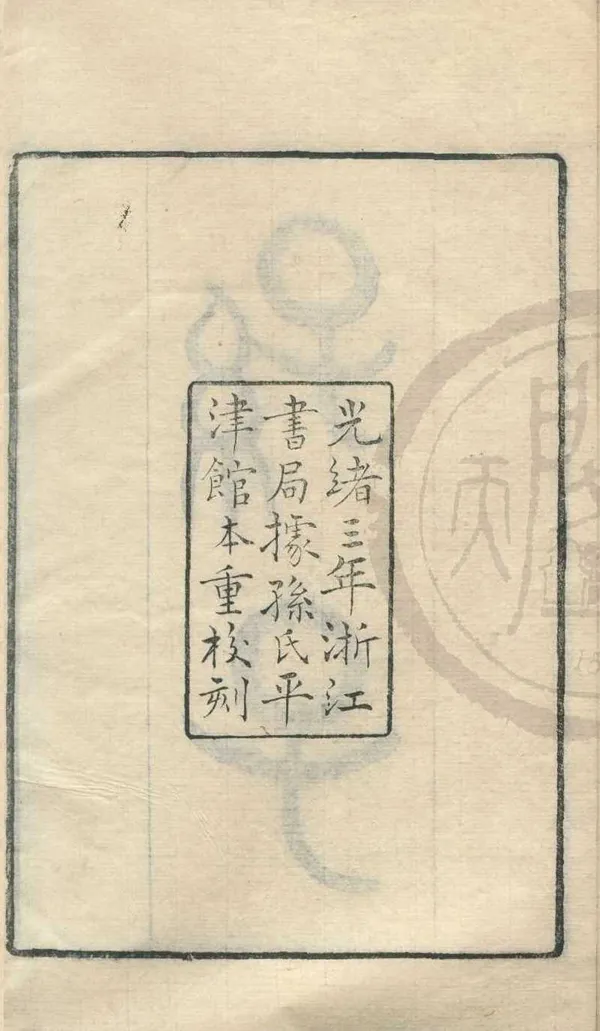 光緒三年浙江
書局據孫氏平
津館本重校刻